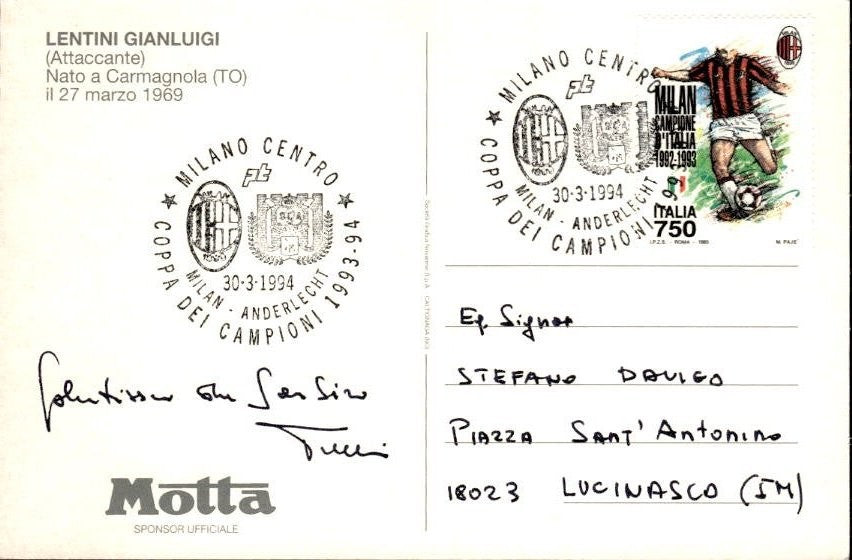 LENTINI GIANLUIGI
(Attaccante)
Nato a Carmagnola (TO)
il 27 marzo 1969
MILANO CENTRO
pt
MILAN - ANDERLECHT
30-3-1994
COPPA DEI CAMPIONI 1993-94
San Siro
Motta
SPONSOR UFFICIALE
MILANO CENTRO
pt
30-3-1994
MILAN - ANDERLECHT
COPPA DEI CAMPIONI
MILAN
CAMPIONE
D'ITALIA
1992-1993
ITALIA
750
I.P.Z.S. - ROMA - 1993
Eg. Signor
STEFANO DAVIGO
PIAZZA SANT' Antonino
18023 LUCINASCO (IM)